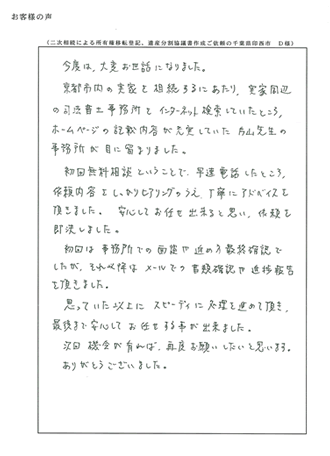 お客様の声
(二次相続による所有権移転登記、遺産分割協議書作成ご依頼の千葉県印西市 D様)
今度は、大変お世話になりました。
京都市内の実家を相続するにあたり、実家周辺
の司法書士事務所をインターネット検索していたところ、
ホームページの記載内容が充実していた 片山先生の
事務所が目に留まりました。
初回無料相談ということで、早速電話したところ、
依頼内容をしっかりヒアリングのうえ、丁寧にアドバイスを
頂きました。安心してお任せ出来ると思い、依頼を
即決しました。
初回は事務所での面談や進め方最終確認で
したが、それ以降はメールでの書類確認や進捗報告
を頂きました。
思っていた以上に スピーディに処理を進めて頂き、
最後まで安心して お任せする事が出来ました。
次回 機会が有れば、再度お願いしたいと思います。
ありがとうございました。